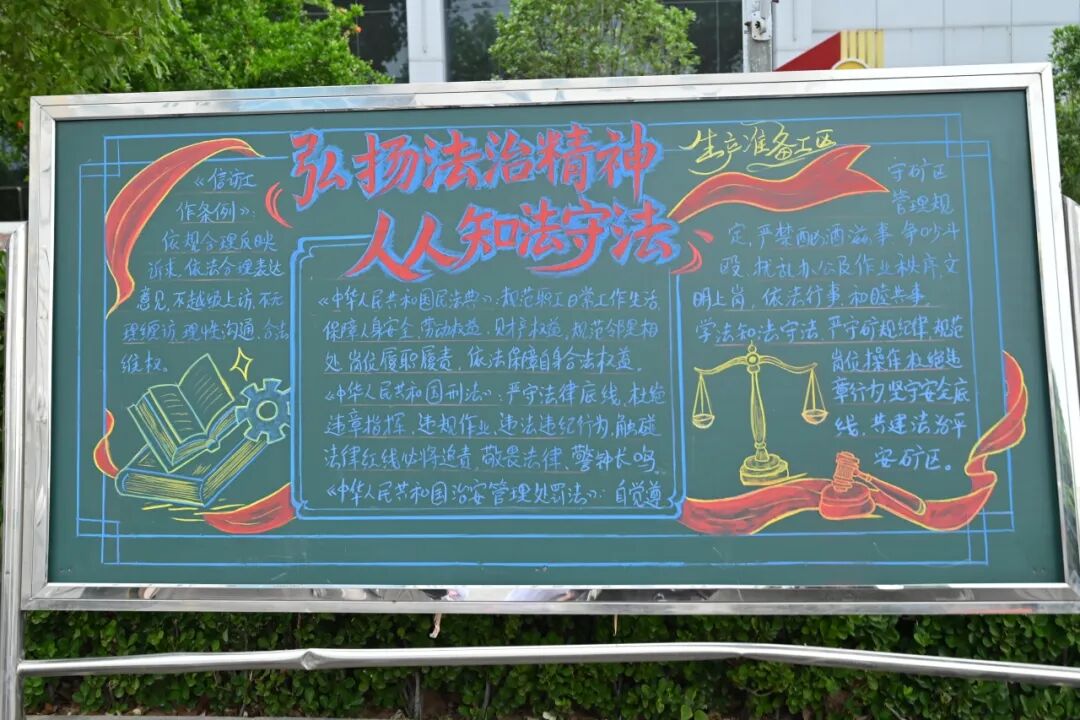 弘扬法治精神
人人知法守法
生产准备工区
《信访工
作条例》:
依规合理反映
诉求,依法合理表达
意见,不越级上访,不无
理缠访,理性沟通,合法
维权。
《中华人民共和国民法典》:规范职工日常工作生活,
保障人身安全,劳动权益,财产权益,规范邻里相
处,岗位履职履责,依法保障自身合法权益。
《中华人民共和国刑法》:严守法律底线,杜绝
违章指挥,违规作业,违法违纪行为,触碰
法律红线必将追责,敬畏法律,警钟长鸣。
《中华人民共和国治安管理处罚法》:自觉遵
守矿区
管理规
定,严禁酗酒滋事,争吵斗
殴,扰乱办公及作业秩序,文
明上岗,依法行事,和睦共事。
学法知法守法,严守矿规纪律,规范
岗位操作,杜绝违
章行为,坚守安全底
线,共建法治平
安矿区。